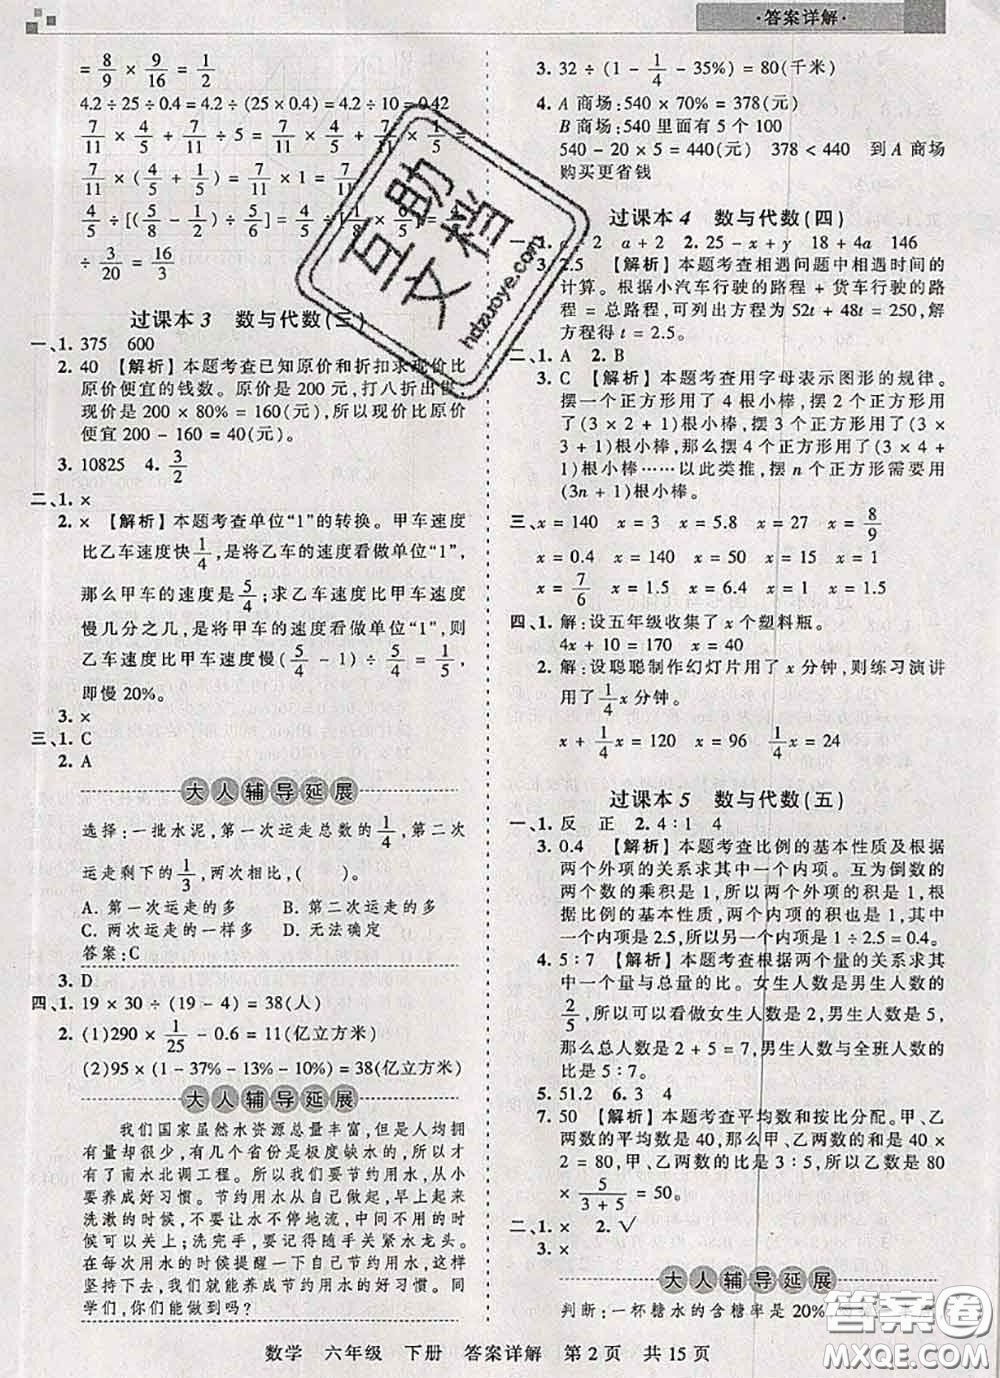 ·答案详解·
= 8/9 × 9/16 = 1/2
4.2 ÷ 25 ÷ 0.4 = 4.2 ÷ (25 × 0.4) = 4.2 ÷ 10 = 0.42
7/11 × 4/5 + 7/11 ÷ 5 = 7/11 × 4/5 + 7/11 × 1/5 =
7/11 × (4/5 + 1/5) = 7/11 × 1 = 7/11
4/5 ÷ [(
÷ 3/20 = 16/3
过课本 3 数与代数(三)
一、1. 375 600
2. 40 【解析】本题考查已知原价和折扣求现价比
原价便宜的钱数。原价是 200 元,打八折出售,
现价是 200 × 80% = 160(元),所以现价比原价
便宜 200 - 160 = 40(元)。
3. 10825 4. 3/2
二、1. ×
2. × 【解析】本题考查单位“1”的转换。甲车速度
比乙车速度快 1/4,是将乙车的速度看做单位“1”,
那么甲车的速度是 5/4;求乙车速度比甲车速度
慢几分之几,是将甲车的速度看做单位“1”,则
乙车速度比甲车速度慢 (5/4 - 1) ÷ 5/4 = 1/5,
即慢 20%。
3. ×
三、1. C
2. A
大人辅导延展
选择:一批水泥,第一次运走总数的 1/4,第二次
运走剩下的 1/3,两次相比,( )。
A. 第一次运走的多 B. 第二次运走的多
C. 两次运走的一样多 D. 无法确定
答案:C
3. D
四、1. 19 × 30 ÷ (19 - 4) = 38(人)
2. (1)290 × 1/25 - 0.6 = 11(亿立方米)
(2)95 × (1 - 37% - 13% - 10%) = 38(亿立方米)
大人辅导延展
我们国家虽然水资源总量丰富,但是人均拥
有量却很少,有几个省份是极度缺水的,所以才
有了南水北调工程。所以我们要节约用水,从小
要养成好习惯。节约用水从自身做起,早上起来
洗漱的时候,不要让水不停地流,中间不用的时
候可以关上;洗完手,要记得随手关好水龙头。
在每次用水的时候提醒一下自己节约用水,这样
坚持下去,我们就能养成节约用水的好习惯。同
学们,你们能做到吗?
3. 32 ÷ (1 - 1/4 - 35%) = 80(千米)
4. A 商场:540 × 70% = 378(元)
B 商场:540 里面有 5 个 100
540 - 20 × 5 = 440(元) 378 < 440 到 A 商场
购买更省钱
过课本 4 数与代数(四)
一、1. a - 2 a + 2 2. 25 - x + y 18 + 4a 146
3. 2.5 【解析】本题考查相遇问题中相遇时间的
计算。根据小汽车行驶的路程 + 货车行驶的路
程 = 总路程,可列出方程为 52t + 48t = 250,解
方程得 t = 2.5。
二、1. A 2. B
3. C 【解析】本题考查用字母表示图形的规律。
摆一个正方形用了 4 根小棒,摆 2 个正方形用了
(3 × 2 + 1)根小棒,摆 3 个正方形用了(3 ×
3 + 1)根小棒,那么摆 4 个正方形用了(3 × 4 +
1)根小棒……以此类推,摆 n 个正方形需要用
(3n + 1)根小棒。
三、x = 140 x = 3 x = 5.8 x = 27 x = 8/9
x = 0.4 x = 140 x = 50 x = 15 x = 15
x = 7/6 x = 1.5 x = 6.4 x = 1 x = 1.5
四、1. 解:设五年级收集了 x 个塑料瓶。
4x + 10 = 170 x = 40
2. 解:设聪聪制作幻灯片用了 x 分钟,则练习演讲
用了 1/4 x 分钟。
x + 1/4 x = 120 x = 96 1/4 x = 24
过课本 5 数与代数(五)
一、1. 反 正 2. 4∶1 4
3. 0.4 【解析】本题考查比例的基本性质及根据
两个外项的关系求其中一个内项。互为倒数的
两个数的乘积是 1,所以两个外项的积是 1,根
据比例的基本性质,两个内项的积也是 1,其中
一个内项是 2.5,所以另一个内项是 1 ÷ 2.5 = 0.4。
4. 5∶7 【解析】本题考查根据两个量的关系求其
中一个量与总量的比。女生人数是男生人数的
2/5,所以可以看做女生人数是 2,男生人数是 5,
那么总人数是 2 + 5 = 7,男生人数与全班人数的
比是 5∶7。
5. 51.2 6. 3 4
7. 50 【解析】本题考查平均数和按比分配。甲、乙
两数的平均数是 40,那么甲、乙两数的和就是
80,而甲、乙两数的比是 3∶5,所以乙数是 80
× 5/(5 + 3) = 50。
二、1. × 2. √
3. ×
大人辅导延展
判断:一杯糖水的含糖率是 20%
数学 六年级 下册 答案详解 第 2 页 共 15 页
互助文档
hdzuoye.com
答案圈
MXQE.COM